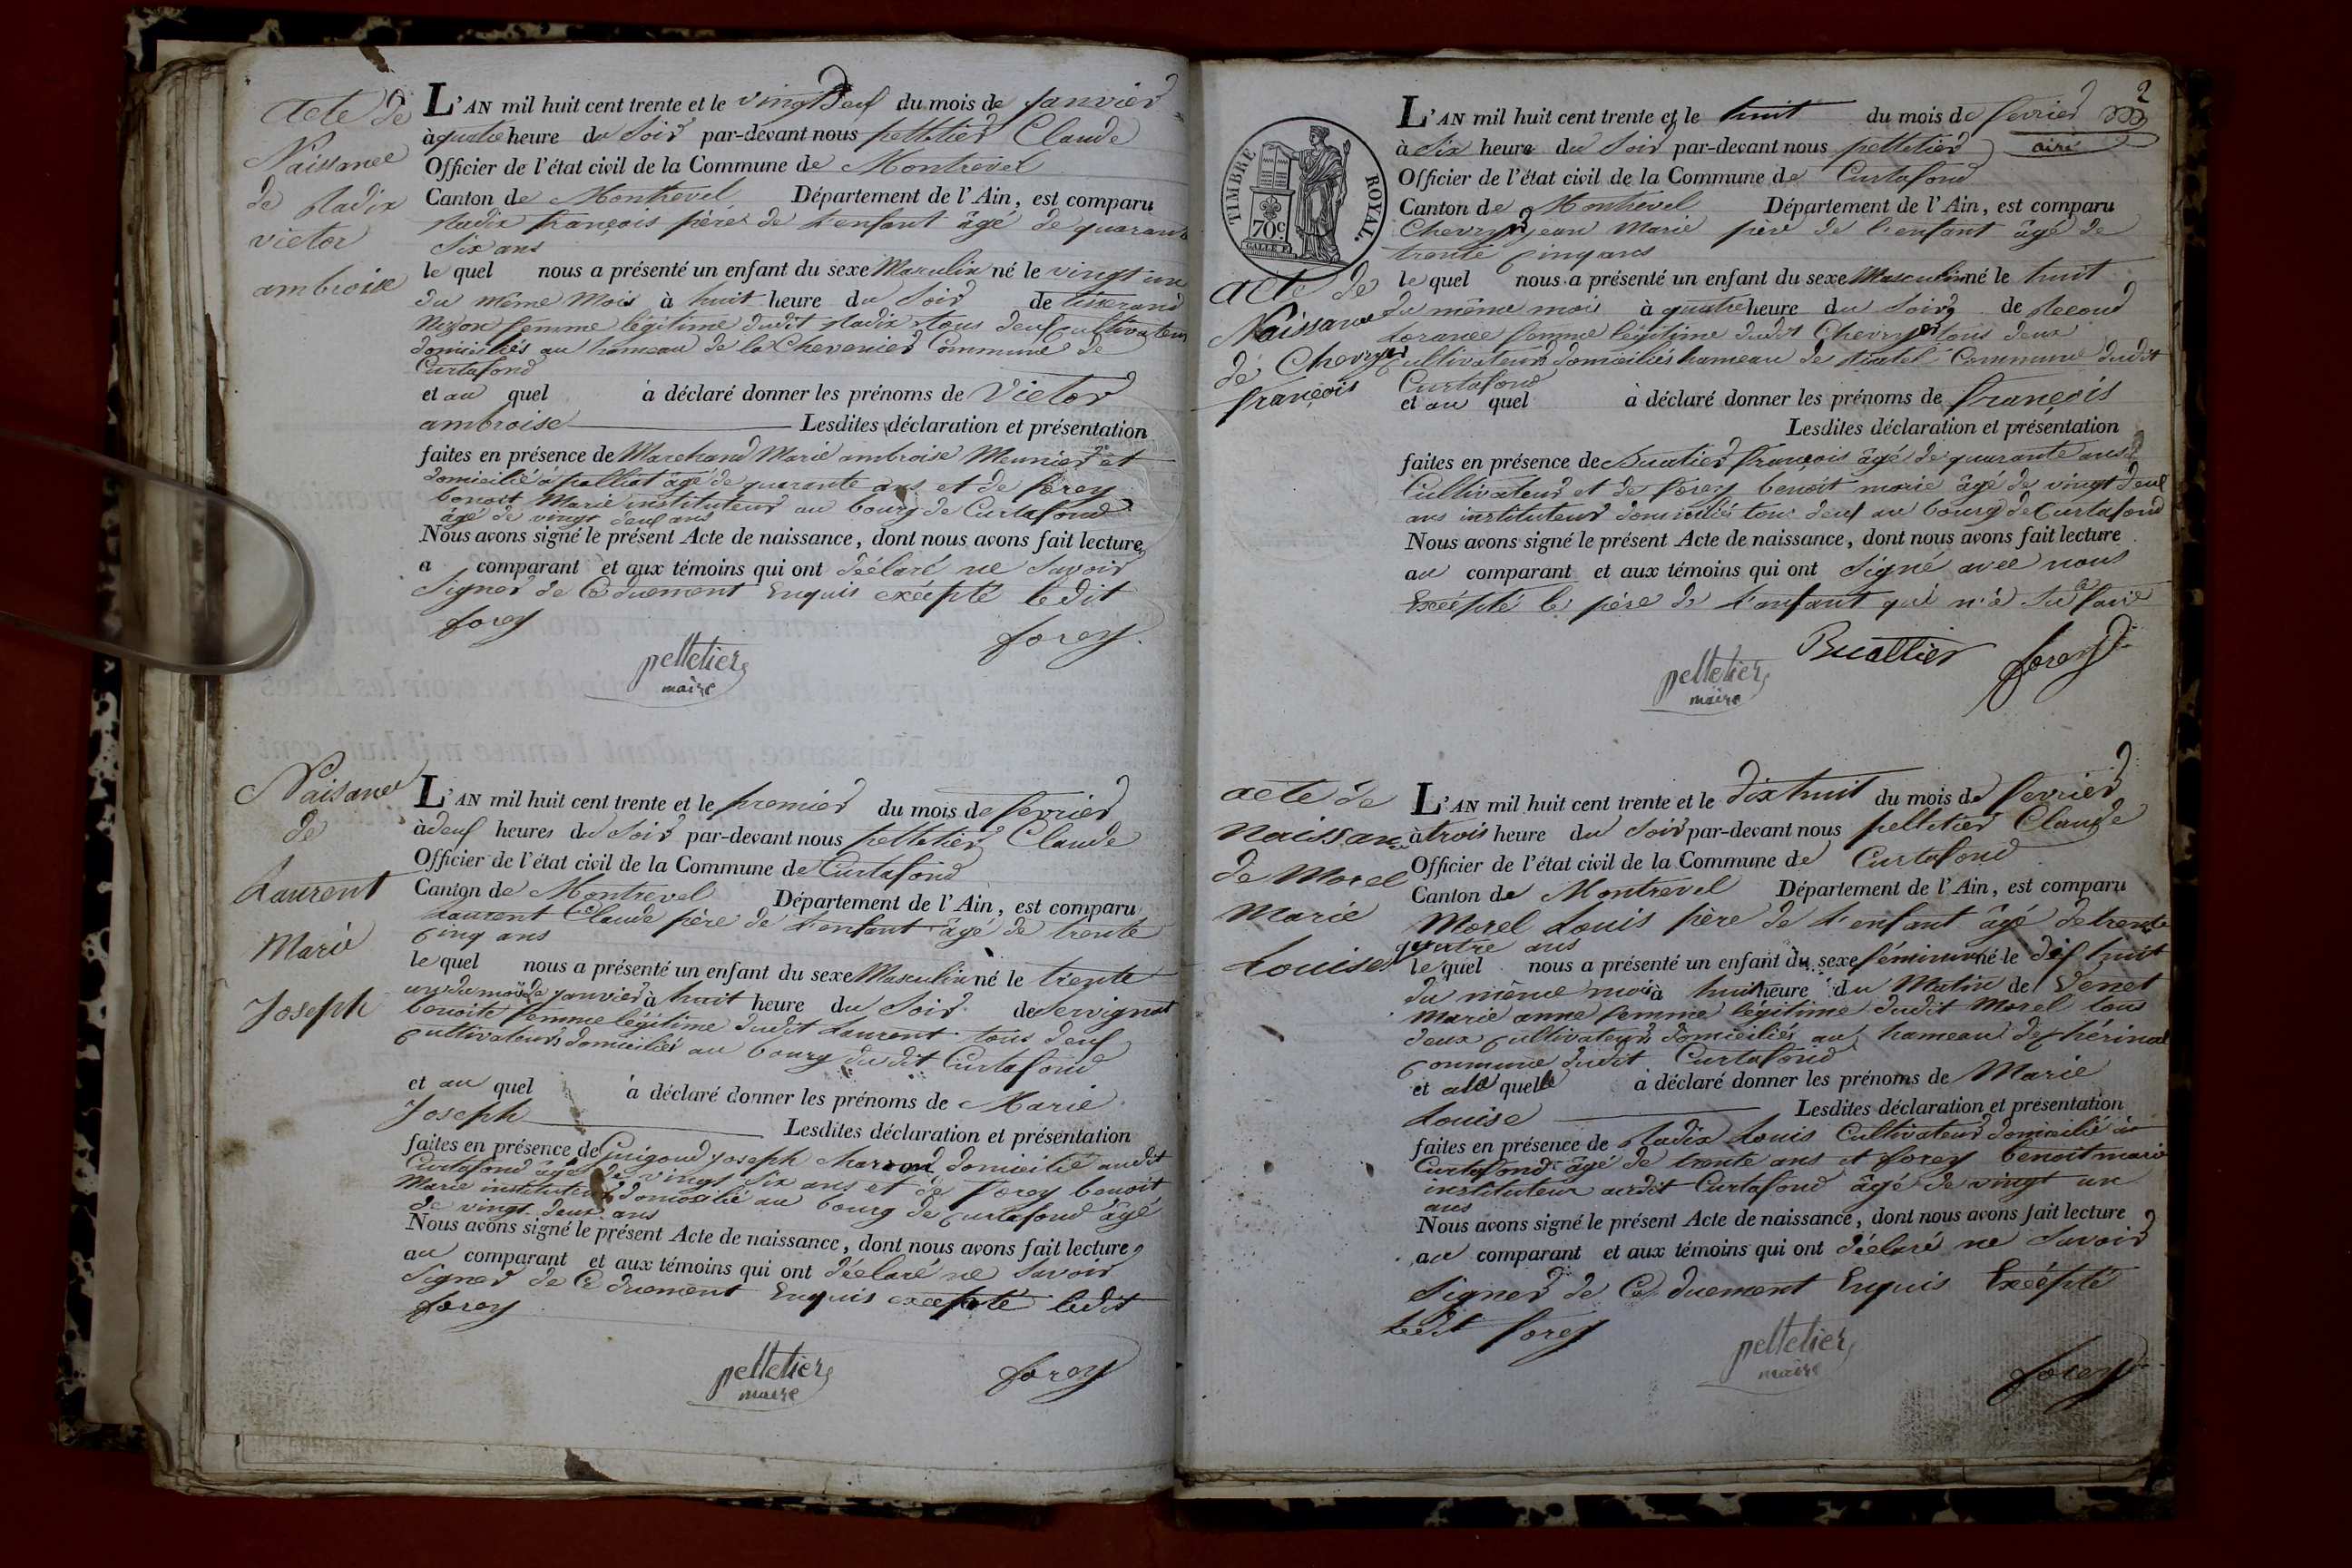 acte de
Naissance
de Radix
victor
ambroise
L'AN mil huit cent trente et le vingt deux du mois de janvier
à quatre heure du soir par-devant nous pelletier Claude
Officier de l'état civil de la Commune de Montrevel
Canton de Montrevel Département de l'Ain, est comparu
Radix françois père de l'enfant âgé de quarante
six ans
le quel nous a présenté un enfant du sexe Masculin né le vingt un
du même mois à huit heure du soir de tisserand
femme légitime dudit Radix tous deux cultivateurs
domiciliés au hameau de la Chevenier Commune de
Curtafond
et au quel à déclaré donner les prénoms de Victor
ambroise Lesdites déclaration et présentation
faites en présence de Marchand Marie ambroise Meunier et
domicilié à polliat âgé de quarante ans et de forey
benoit Marie instituteur au bourg de Curtafond
âgé de vingt deux ans
Nous avons signé le présent Acte de naissance, dont nous avons fait lecture
a comparant et aux témoins qui ont déclaré ne savoir
signer de ce duement Enquis excépté ledit
forey
forey
pelletier
maire
Naisance
de
Laurent
Marie
Joseph
L'AN mil huit cent trente et le premier du mois de fevrier
à deux heures du soir par-devant nous pelletier Claude
Officier de l'état civil de la Commune de Curtafond
Canton de Montrevel Département de l'Ain, est comparu
Laurent Claude père de l'enfant âgé de trente
cinq ans
le quel nous a présenté un enfant du sexe Masculin né le trente
un du mois de janvier à huit heure du soir de Servignat
benoite femme légitime dudit Laurent tous deux
cultivateurs domiciliés au bourg dudit Curtafond
et au quel à déclaré donner les prénoms de Marie
Joseph Lesdites déclaration et présentation
faites en présence de Guigoud joseph charron domicilié audit
Curtafond âgé de vingt six ans et de forey benoit
Marie instituteur domicilié au bourg de Curtafond âgé
de vingt deux ans
Nous avons signé le présent Acte de naissance, dont nous avons fait lecture
au comparant et aux témoins qui ont déclaré ne savoir
signer de ce duement Enquis excepté ledit
forey
pelletier forey
maire
2
TIMBRE ROYAL.
70c
acte de
Naissance
de Chevryer
françois
L'AN mil huit cent trente et le huit du mois de fevrier
à six heure du soir par-devant nous pelletier
Officier de l'état civil de la Commune de Curtafond
Canton de Montrevel Département de l'Ain, est comparu
Chevryer jean Marie père de l'enfant âgé de
trente cinq ans
le quel nous a présenté un enfant du sexe Masculin né le huit
du même mois à quatre heure du soir de
femme légitime dudit Chevryer tous deux
cultivateurs domiciliés hameau de Commune dudit
Curtafond
et au quel à déclaré donner les prénoms de françois
Lesdites déclaration et présentation
faites en présence de Buatier françois âgé de quarante ans
Cultivateur et de forey benoit marie âgé de vingt deux
ans instituteur domiciliés tous deux au bourg de Curtafond
Nous avons signé le présent Acte de naissance, dont nous avons fait lecture
au comparant et aux témoins qui ont signé avec nous
Excépté le père de l'enfant qui n'a su le faire
Buattier forey
pelletier
maire
acte de
naissance
de Morel
Marie
Louise
L'AN mil huit cent trente et le dix huit du mois de fevrier
à trois heure du soir par-devant nous pelletier Claude
Officier de l'état civil de la Commune de Curtafond
Canton de Montrevel Département de l'Ain, est comparu
Morel Louis père de l'enfant âgé de trente
quatre ans
le quel nous a présenté un enfant du sexe féminin né le dix huit
du même mois à huit heure du Matin de Venet
Marie anne femme légitime dudit Morel tous
deux cultivateurs domiciliés au hameau de
Commune dudit Curtafond
et à la quelle à déclaré donner les prénoms de Marie
Louise Lesdites déclaration et présentation
faites en présence de Radix Louis Cultivateur domicilié à
Curtafond âgé de trente ans et forey benoit marie
instituteur audit Curtafond âgé de vingt un
ans
Nous avons signé le présent Acte de naissance, dont nous avons fait lecture
au comparant et aux témoins qui ont déclaré ne savoir
signer de ce duement Enquis Excépté
ledit forey
pelletier
maire
forey